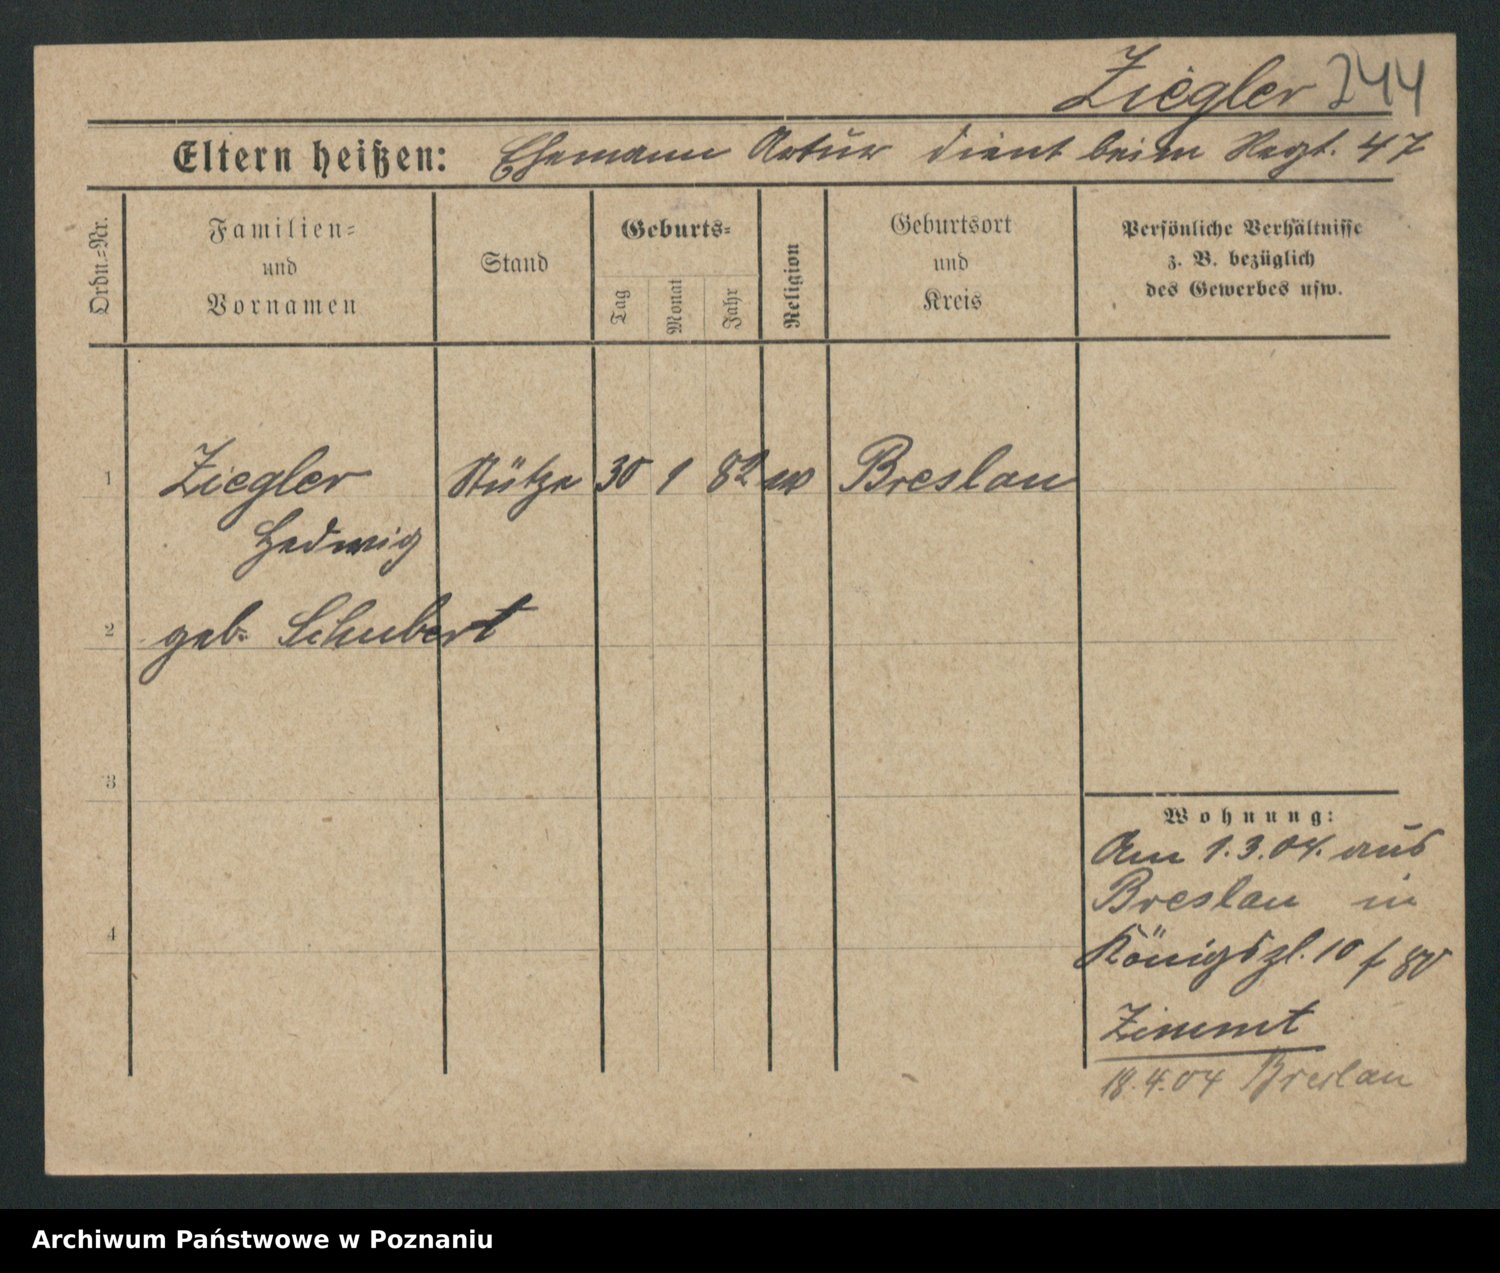 Ziegler 244
Eltern heißen: Ehemann Artur dient beim Regt. 47
Ordn.-Nr.
Familien-
und
Vornamen
Stand
Geburts-
Tag
Monat
Jahr
Religion
Geburtsort
und
Kreis
Persönliche Verhältnisse
z. B. bezüglich
des Gewerbes usw.
1 Ziegler Stütze 30 1 82 Breslau
Hedwig
2 geb. Schubert
3
4
Wohnung:
Am 1.3.04. aus
Breslau in
Königspl. 10
Zimmt
18.4.04 Breslau
Archiwum Państwowe w Poznaniu